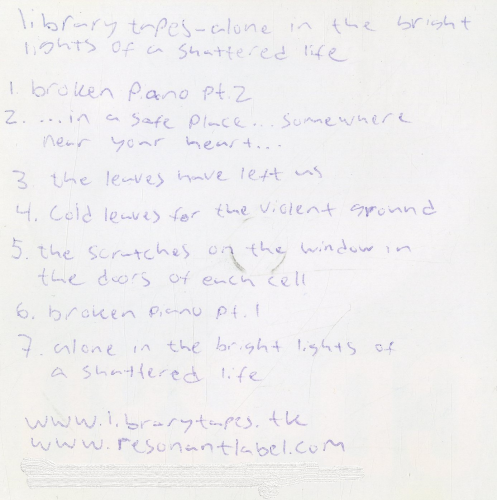 library tapes-alone in the bright
lights of a shattered life
1. broken piano pt.2
2. ...in a safe place... somewhere
near your heart...
3 the leaves have left us
4. cold leaves for the violent ground
5. the scratches on the window in
the doors of each cell
6. broken piano pt.1
7. alone in the bright lights of
a shattered life
www.librarytapes.tk
www.resonantlabel.com